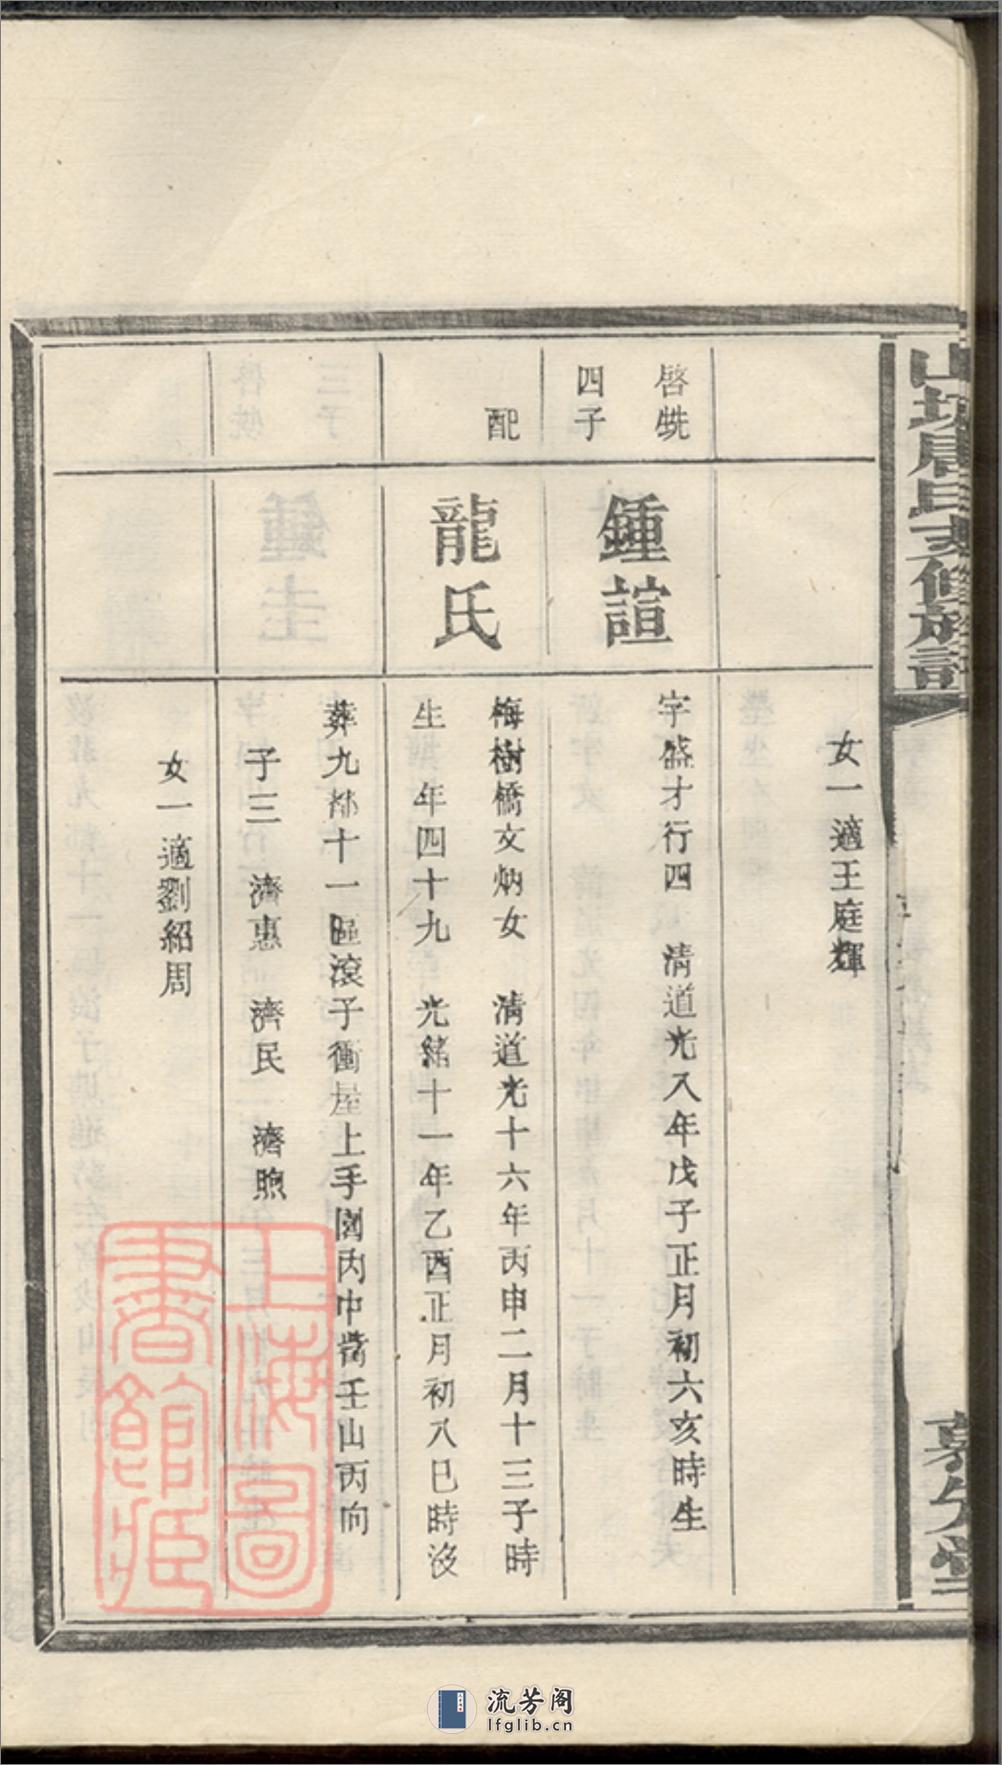 山坑唐氏支修族譜
女一適王庭輝
啓兟
四子
鍾諠
字盛才行四　清道光八年戊子正月初六亥時生
配
龍氏
梅樹橋文炳女　清道光十六年丙申二月十三子時
生　年四十九　光緒十一年乙酉正月初八巳時沒
葬九都十一區滾子衝屋上手園內中嵩壬山丙向
子三　濟惠　濟民　濟煦
女一適劉紹周
上海圖
書館藏
流芳阁
lfglib.cn